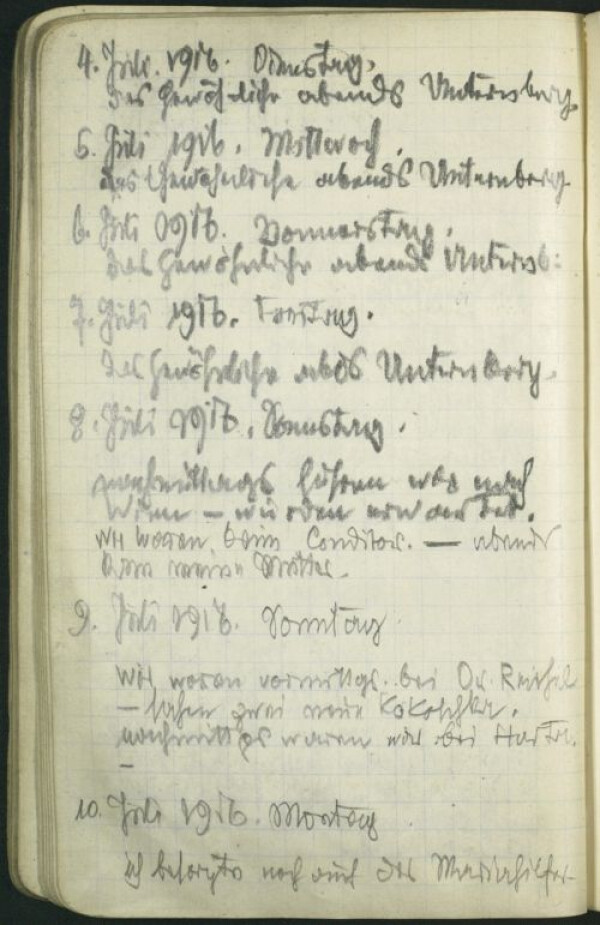 4. Juli. 1916. Dienstag.
das Gewöhnliche abends Unternberg.
5. Juli 1916. Mittwoch.
das Gewöhnliche abends Unternberg.
6. Juli 1916. Donnerstag.
das Gewöhnliche abends Unternb:
7. Juli 1916. Freitag.
das Gewöhnliche abds Unternberg.
8. Juli 1916. Samstag.
nachmittags fuhren wir nach
Wien – wurden erwartet.
wir waren beim Conditor. – abends
kam meine Mutter.
9. Juli 1916. Sonntag
wir waren vormittgs. bei Dr. Reichel
– sahen zwei neue Kokoschka.
nachmittgs waren wir bei Harta.
–
10. Juli 1916. Montag
ich besorgte noch auf der Mariahilfer-